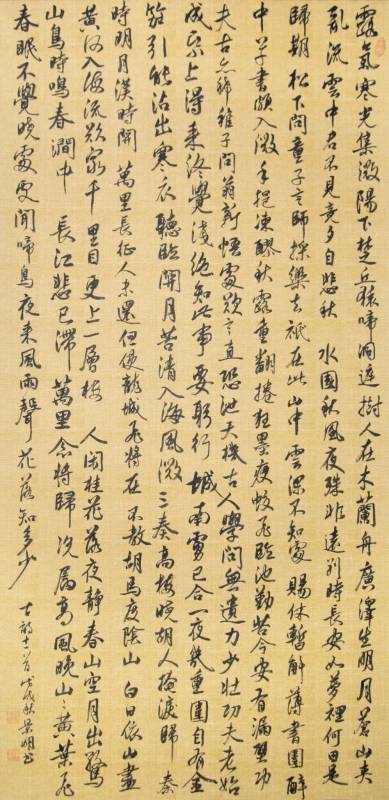 露氣寒光集微陽下楚丘猿啼洞庭樹人在木蘭舟廣澤生明月蒼山夾
亂流雲中君不見竟夕自悲秋 水國秋風夜殊非遠別時長安如夢裡何日是
歸期 松下問童子言師採藥去祇在此山中雲深不知處 賜休暫解薄書圍醉
中草書頗入微手挹凍醪秋露重翻捲狂墨瘦蛟飛臨池勤苦今安有漏壁功
夫古亦稀稚子問翁新悟處欲言直恐泄天機古人學問無遺力少壯功夫老始
成紙上得來終覺淺絕知此事要躬行 城南虜已合一夜幾重圍自有金
笳引能沾出塞衣聽臨關月苦清入海風微三奏高樓曉胡人掩淚歸 秦
時明月漢時關 萬里長征人未還但使龍城飛將在不教胡馬度陰山 白日依山盡
黃河入海流欲窮千里目更上一層樓 人閒桂花落夜靜春山空月出驚
山鳥時鳴春澗中 長江悲已滯 萬里念將歸況屬高風晚山山黃葉飛
春眠不覺曉處處聞啼鳥夜來風雨聲 花落知多少 古詩十一首 戊戌秋景明書